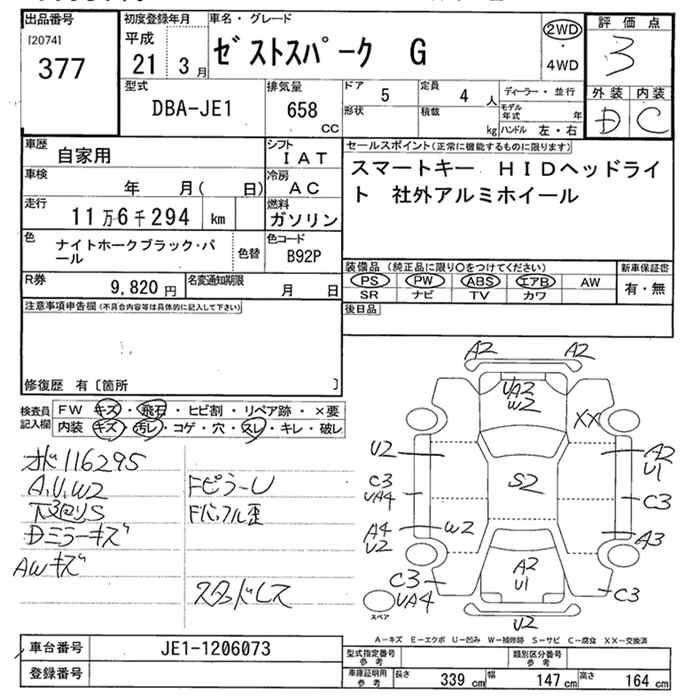 出品番号
[2074]
377
初度登録年月
平成
21 3 月
車名・グレード
ゼストスパーク G
2WD
・
4WD
評価点
3
外装 内装
D C
型式
DBA-JE1
排気量
658 CC
ドア 5
定員 4 人
ディーラー・並行
形状
積載 kg
モデル年式 年
ハンドル 左・右
車歴
自家用
シフト
IAT
車検
年 月( 日)
冷房
AC
走行
11万6千294 km
燃料
ガソリン
色
ナイトホークブラック・パール
色替
色コード
B92P
R券
9,820 円
名変通知期限
月 日
セールスポイント(正常に機能するものに限ります)
スマートキー HIDヘッドライ
ト 社外アルミホイール
装備品(純正品に限り○をつけてください)
PS PW ABS エアB AW
SR ナビ TV カワ
新車保証書
有・無
後日品
注意事項申告欄(不具合内容等は具体的に記入して下さい)
修復歴 有〔箇所 〕
検査員
記入欄
FW キズ・飛石・ヒビ割・リペア跡・×要
内装 キズ・汚レ・コゲ・穴・スレ・キレ・破レ
116295
A,U,W2
下廻りS
Dミラーキズ
AWキズ
FピラーU
スタッドレス
A2 A2
UA2
W2
XX
U2
A2
U1
C3
UA4
S2
C3
A4
U2
W2
A3
A2
U1
C3
UA4
C3
U2
スペア
A-キズ E-エクボ U-凹み W-補修跡 S-サビ C-腐食 XX-交換済
車台番号 JE1-1206073
登録番号
型式指定番号
参考
類別区分番号
参考
車庫証明用
参考
長さ 339 cm 幅 147 cm 高さ 164 cm